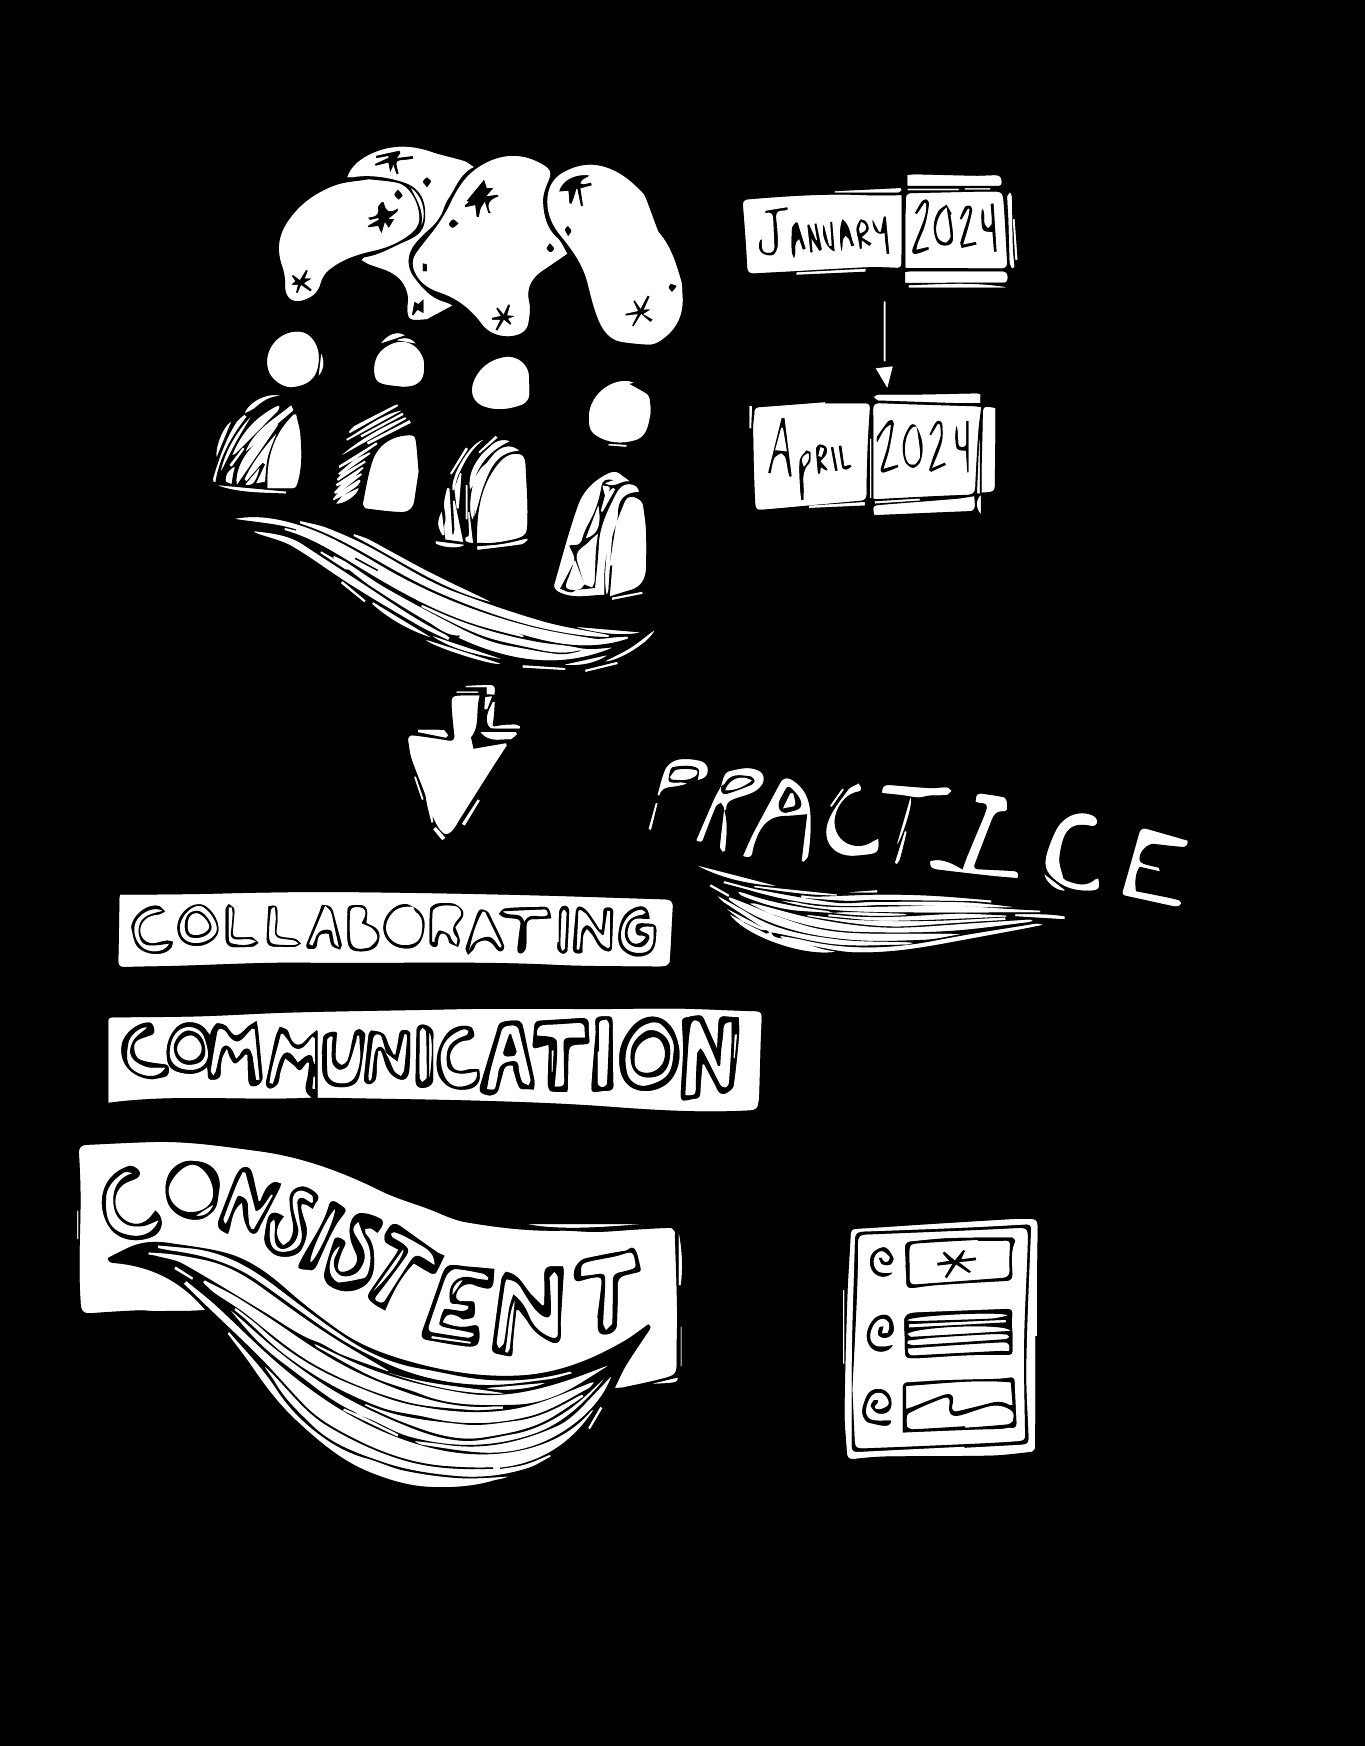 January 2024
April 2024
PRACTICE
COLLABORATING
COMMUNICATION
CONSISTENT